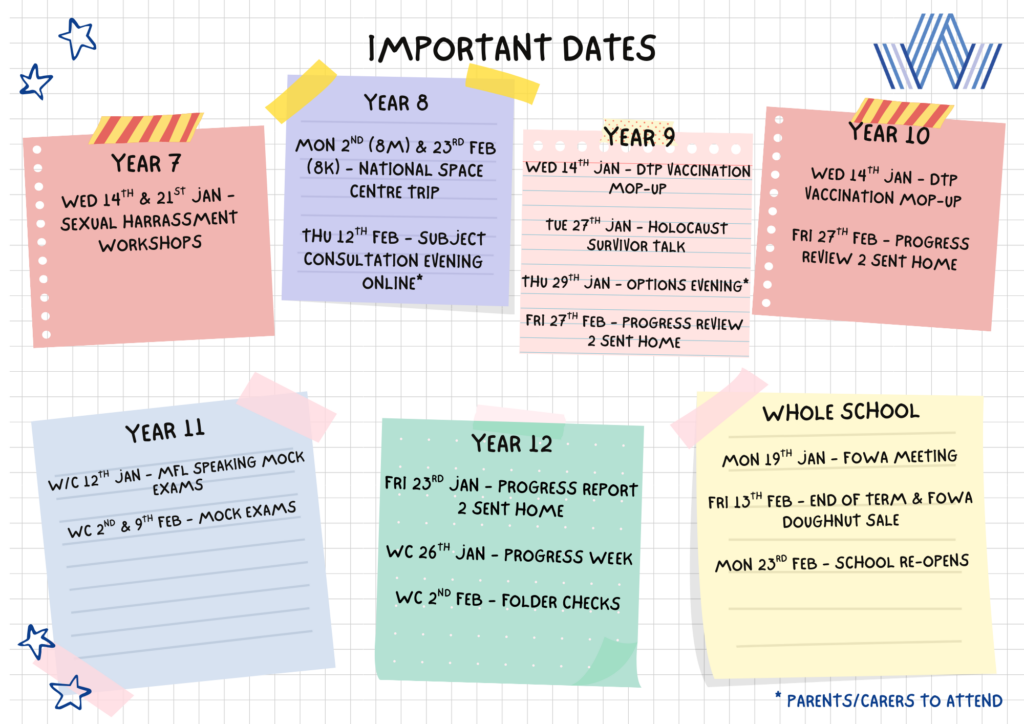 IMPORTANT DATES
YEAR 7
WED 14TH & 21ST JAN –
SEXUAL HARRASSMENT
WORKSHOPS
YEAR 8
MON 2ND (8M) & 23RD FEB
(8K) – NATIONAL SPACE
CENTRE TRIP
THU 12TH FEB – SUBJECT
CONSULTATION EVENING
ONLINE*
YEAR 9
WED 14TH JAN – DTP VACCINATION
MOP-UP
TUE 27TH JAN – HOLOCAUST
SURVIVOR TALK
THU 29TH JAN – OPTIONS EVENING*
FRI 27TH FEB – PROGRESS REVIEW
2 SENT HOME
YEAR 10
WED 14TH JAN – DTP
VACCINATION MOP-UP
FRI 27TH FEB – PROGRESS
REVIEW 2 SENT HOME
YEAR 11
W/C 12TH JAN – MFL SPEAKING MOCK
EXAMS
WC 2ND & 9TH FEB – MOCK EXAMS
YEAR 12
FRI 23RD JAN – PROGRESS REPORT
2 SENT HOME
WC 26TH JAN – PROGRESS WEEK
WC 2ND FEB – FOLDER CHECKS
WHOLE SCHOOL
MON 19TH JAN – FOWA MEETING
FRI 13TH FEB – END OF TERM & FOWA
DOUGHNUT SALE
MON 23RD FEB – SCHOOL RE-OPENS
* PARENTS/CARERS TO ATTEND